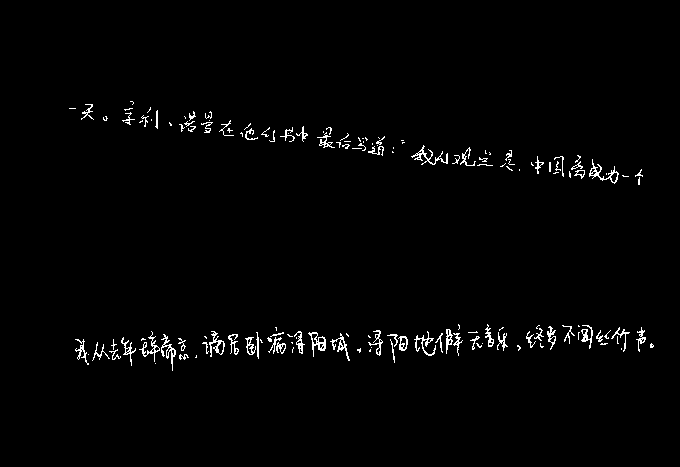 一天。亨利、诺曼在他的书中最后写道:“我的观点是,中国离成为一个
我从去年辞帝京,谪居卧病浔阳城。浔阳地僻无音乐,终岁不闻丝竹声。